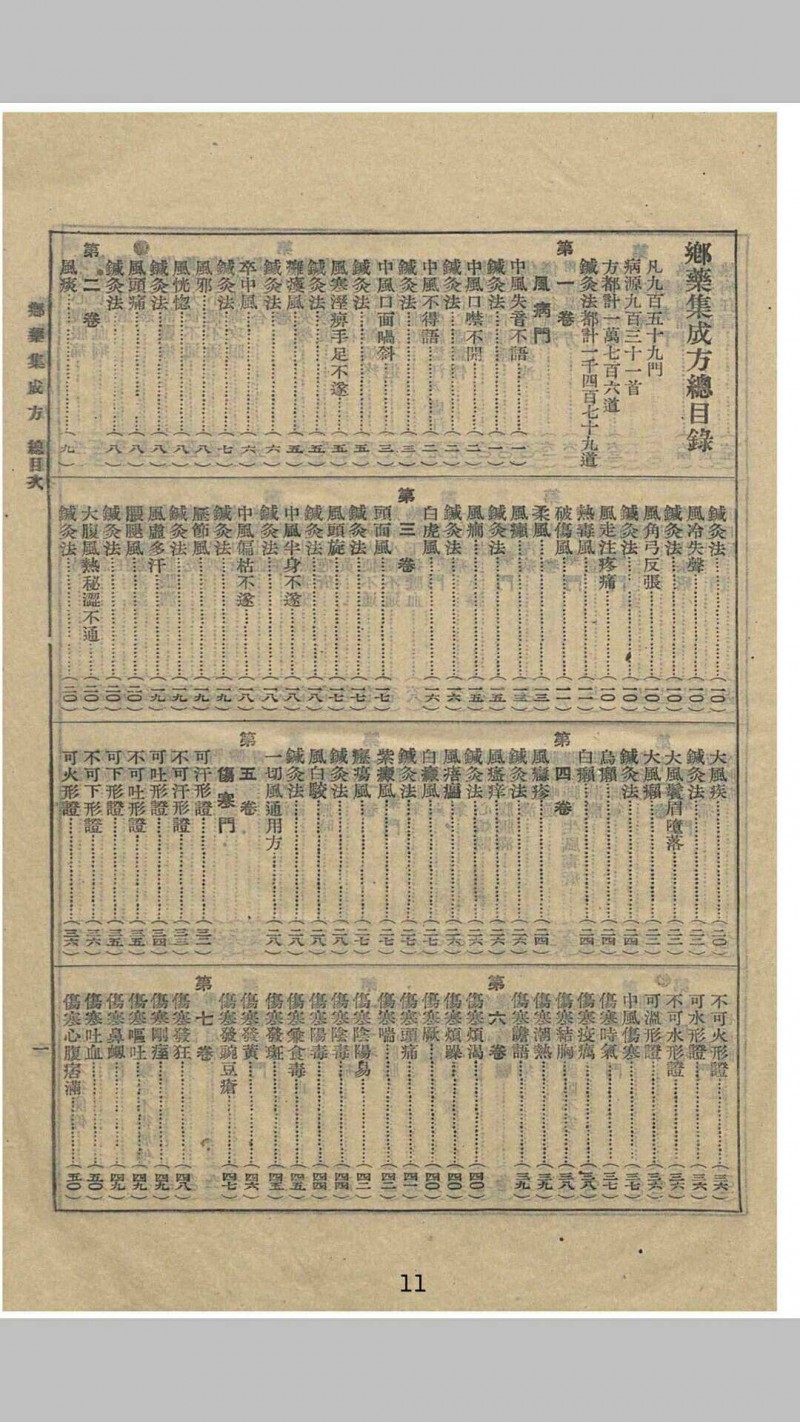 鄕藥集成方總目錄
凡九百五十九門
病源九百三十一首
方都計一萬七百六道
鍼灸法都計一千四百七十九道
第一卷
風病門
中風失音不語(一)
鍼灸法(一)
中風口噤不開(二)
鍼灸法(二)
中風不得語(二)
鍼灸法(三)
中風口面喎斜(三)
鍼灸法(五)
風寒溼痹手足不遂(五)
鍼灸法(五)
癱瘓風(五)
鍼灸法(六)
卒中風(六)
鍼灸法(七)
風邪(八)
風恍惚(八)
鍼灸法(八)
風頭痛(八)
鍼灸法(八)
第二卷
風痰(九)
鍼灸法(一〇)
風冷失聲(一〇)
鍼灸法(一〇)
風角弓反張(一〇)
鍼灸法(一〇)
風走注疼痛(一〇)
熱毒風(一一)
破傷風(一一)
柔風(一三)
風癲(一三)
鍼灸法(一五)
風癎(一五)
鍼灸法(一六)
白虎風(一六)
第三卷
頭面風(一七)
鍼灸法(一七)
風頭旋(一七)
鍼灸法(一八)
中風半身不遂(一八)
鍼灸法(一八)
中風偏枯不遂(一八)
鍼灸法(一九)
歷節風(一九)
鍼灸法(一九)
風虛多汗(一九)
腲腿風(二〇)
鍼灸法(二〇)
大腹風熱秘澀不通(二〇)
鍼灸法(二〇)
大風疾(二〇)
鍼灸法(二二)
大風鬚眉墮落(二二)
大風癩(二三)
鍼灸法(二四)
烏癩(二四)
白癩(二四)
第四卷
風癮疹(二四)
鍼灸法(二六)
風瘙痒(二六)
鍼灸法(二六)
風瘙癮(二六)
白癜風(二七)
鍼灸法(二七)
紫癜風(二七)
癧瘍風(二七)
鍼灸法(二八)
風白駮(二八)
鍼灸法(二八)
一切風通用方(二八)
第五卷
傷寒門
可汗形證(三二)
不可汗形證(三三)
可吐形證(三四)
不可吐形證(三五)
可下形證(三五)
不可下形證(三六)
可火形證(三六)
不可火形證(三六)
可水形證(三六)
不可水形證(三六)
可溫形證(三六)
中風傷寒(三七)
傷寒時氣(三七)
傷寒疫癘(三八)
傷寒結胸(三八)
傷寒潮熱(三九)
傷寒譫語(三九)
第六卷
傷寒煩渴(四〇)
傷寒煩躁(四〇)
傷寒厥(四〇)
傷寒頭痛(四一)
傷寒喘(四二)
傷寒陰陽易(四二)
傷寒陰毒(四四)
傷寒陽毒(四四)
傷寒𩚁食毒(四五)
傷寒發斑(四五)
傷寒發黃(四六)
傷寒發豌豆瘡(四七)
第七卷
傷寒發狂(四八)
傷寒剛痓(四九)
傷寒嘔吐(四九)
傷寒鼻衄(四九)
傷寒吐血(五〇)
傷寒心腹痞滿(五〇)
鄕藥集成方 總目次
一
11